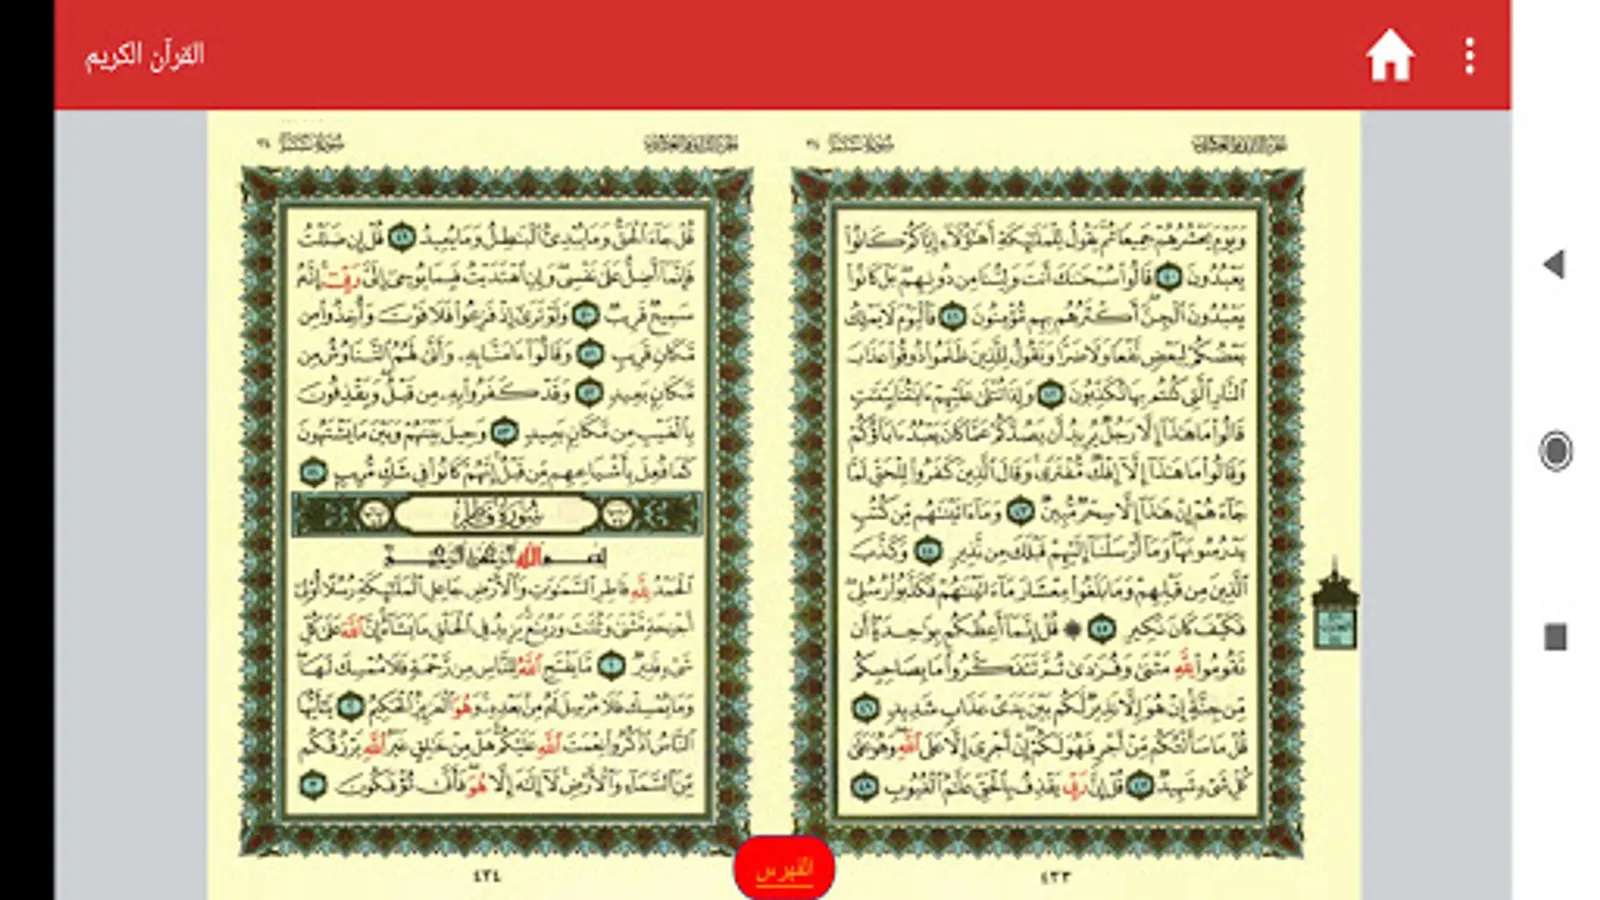 القرآن الكريم
وَيَوْمَ يَحْشُرُهُمْ جَمِيعًا ثُمَّ يَقُولُ لِلْمَلَٰٓئِكَةِ أَهَٰٓؤُلَآءِ إِيَّاكُمْ كَانُوا۟
يَعْبُدُونَ ٤٠ قَالُوا۟ سُبْحَٰنَكَ أَنتَ وَلِيُّنَا مِن دُونِهِم بَلْ كَانُوا۟
يَعْبُدُونَ ٱلْجِنَّ أَكْثَرُهُم بِهِم مُّؤْمِنُونَ ٤١ فَٱلْيَوْمَ لَا يَمْلِكُ
بَعْضُكُمْ لِبَعْضٍ نَّفْعًا وَلَا ضَرًّا وَنَقُولُ لِلَّذِينَ ظَلَمُوا۟ ذُوقُوا۟ عَذَابَ
ٱلنَّارِ ٱلَّتِى كُنتُم بِهَا تُكَذِّبُونَ ٤٢ وَإِذَا تُتْلَىٰ عَلَيْهِمْ ءَايَٰتُنَا بَيِّنَٰتٍ
قَالُوا۟ مَا هَٰذَآ إِلَّا رَجُلٌ يُرِيدُ أَن يَصُدَّكُمْ عَمَّا كَانَ يَعْبُدُ ءَابَآؤُكُمْ
وَقَالُوا۟ مَا هَٰذَآ إِلَّآ إِفْكٌ مُّفْتَرًى وَقَالَ ٱلَّذِينَ كَفَرُوا۟ لِلْحَقِّ لَمَّا
جَآءَهُمْ إِنْ هَٰذَآ إِلَّا سِحْرٌ مُّبِينٌ ٤٣ وَمَآ ءَاتَيْنَٰهُم مِّن كُتُبٍ
يَدْرُسُونَهَا وَمَآ أَرْسَلْنَآ إِلَيْهِمْ قَبْلَكَ مِن نَّذِيرٍ ٤٤ وَكَذَّبَ
ٱلَّذِينَ مِن قَبْلِهِمْ وَمَا بَلَغُوا۟ مِعْشَارَ مَآ ءَاتَيْنَٰهُمْ فَكَذَّبُوا۟ رُسُلِى
فَكَيْفَ كَانَ نَكِيرِ ٤٥ قُلْ إِنَّمَآ أَعِظُكُم بِوَٰحِدَةٍ أَن
تَقُومُوا۟ لِلَّهِ مَثْنَىٰ وَفُرَٰدَىٰ ثُمَّ تَتَفَكَّرُوا۟ مَا بِصَاحِبِكُم
مِّن جِنَّةٍ إِنْ هُوَ إِلَّا نَذِيرٌ لَّكُم بَيْنَ يَدَىْ عَذَابٍ شَدِيدٍ ٤٦
قُلْ مَا سَأَلْتُكُم مِّنْ أَجْرٍ فَهُوَ لَكُمْ إِنْ أَجْرِىَ إِلَّا عَلَى ٱللَّهِ وَهُوَ عَلَىٰ
كُلِّ شَىْءٍ شَهِيدٌ ٤٧ قُلْ إِنَّ رَبِّى يَقْذِفُ بِٱلْحَقِّ عَلَّٰمُ ٱلْغُيُوبِ ٤٨
٤٣٣
قُلْ جَآءَ ٱلْحَقُّ وَمَا يُبْدِئُ ٱلْبَٰطِلُ وَمَا يُعِيدُ ٤٩ قُلْ إِن ضَلَلْتُ
فَإِنَّمَآ أَضِلُّ عَلَىٰ نَفْسِى وَإِنِ ٱهْتَدَيْتُ فَبِمَا يُوحِىٓ إِلَىَّ رَبِّىٓ إِنَّهُۥ
سَمِيعٌ قَرِيبٌ ٥٠ وَلَوْ تَرَىٰٓ إِذْ فَزِعُوا۟ فَلَا فَوْتَ وَأُخِذُوا۟ مِن
مَّكَانٍ قَرِيبٍ ٥١ وَقَالُوٓا۟ ءَامَنَّا بِهِۦ وَأَنَّىٰ لَهُمُ ٱلتَّنَاوُشُ مِن
مَّكَانٍۭ بَعِيدٍ ٥٢ وَقَدْ كَفَرُوا۟ بِهِۦ مِن قَبْلُ وَيَقْذِفُونَ
بِٱلْغَيْبِ مِن مَّكَانٍۭ بَعِيدٍ ٥٣ وَحِيلَ بَيْنَهُمْ وَبَيْنَ مَا يَشْتَهُونَ
كَمَا فُعِلَ بِأَشْيَاعِهِم مِّن قَبْلُ إِنَّهُمْ كَانُوا۟ فِى شَكٍّ مُّرِيبٍۭ ٥٤
سُورَةُ فَاطِرٍ
بِسْمِ ٱللَّهِ ٱلرَّحْمَٰنِ ٱلرَّحِيمِ
ٱلْحَمْدُ لِلَّهِ فَاطِرِ ٱلسَّمَٰوَٰتِ وَٱلْأَرْضِ جَاعِلِ ٱلْمَلَٰٓئِكَةِ رُسُلًا أُو۟لِىٓ
أَجْنِحَةٍ مَّثْنَىٰ وَثُلَٰثَ وَرُبَٰعَ يَزِيدُ فِى ٱلْخَلْقِ مَا يَشَآءُ إِنَّ ٱللَّهَ عَلَىٰ كُلِّ
شَىْءٍ قَدِيرٌ ١ مَّا يَفْتَحِ ٱللَّهُ لِلنَّاسِ مِن رَّحْمَةٍ فَلَا مُمْسِكَ لَهَا
وَمَا يُمْسِكْ فَلَا مُرْسِلَ لَهُۥ مِنۢ بَعْدِهِۦ وَهُوَ ٱلْعَزِيزُ ٱلْحَكِيمُ ٢ يَٰٓأَيُّهَا
ٱلنَّاسُ ٱذْكُرُوا۟ نِعْمَتَ ٱللَّهِ عَلَيْكُمْ هَلْ مِنْ خَٰلِقٍ غَيْرُ ٱللَّهِ يَرْزُقُكُم
مِّنَ ٱلسَّمَآءِ وَٱلْأَرْضِ لَآ إِلَٰهَ إِلَّا هُوَ فَأَنَّىٰ تُؤْفَكُونَ ٣
٤٣٤
الفهرس